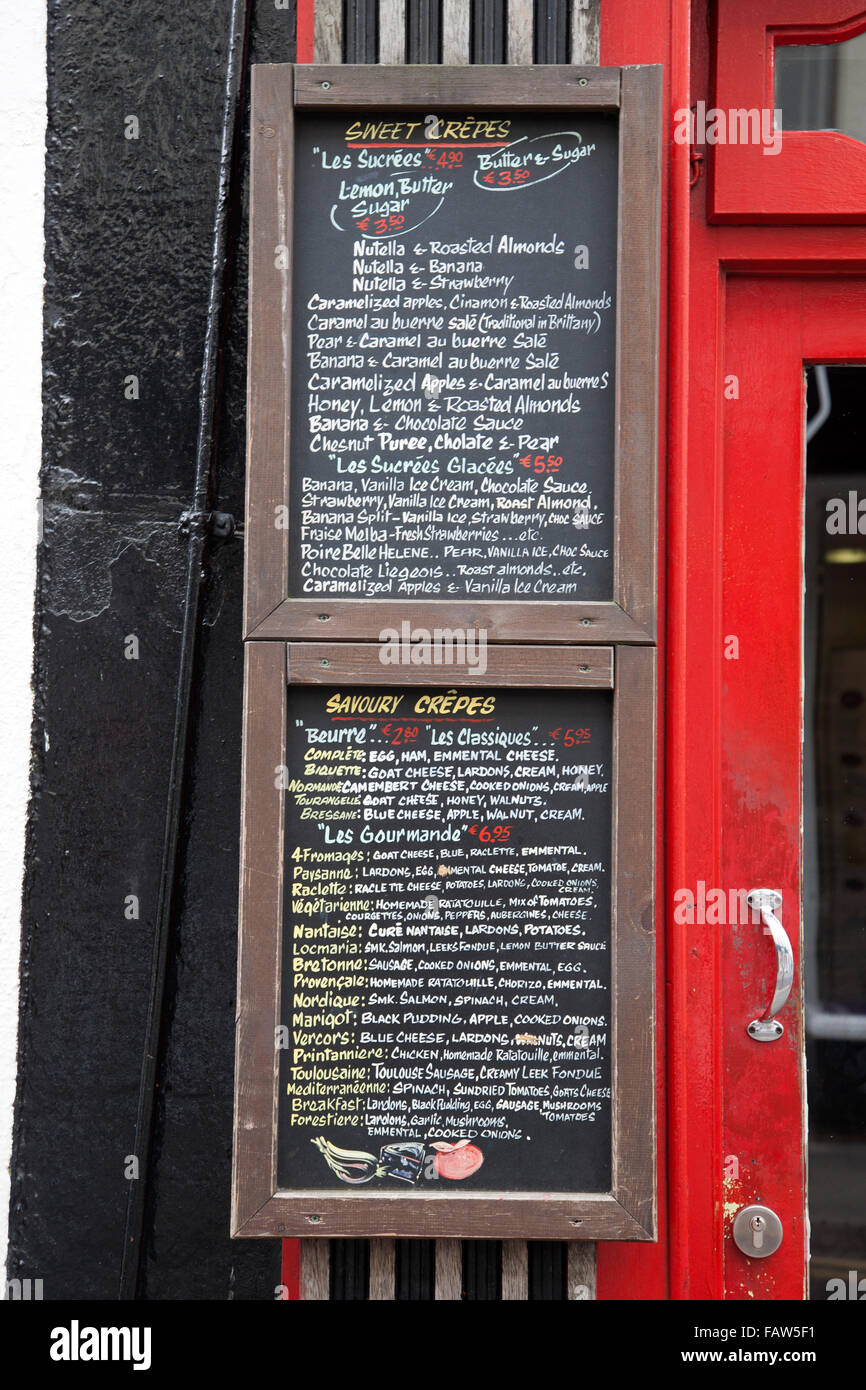 SWEET CRÊPES
"LES SUCRÉES" €4.90
BUTTER & SUGAR
€3.50
LEMON, BUTTER
SUGAR
€3.50
NUTELLA & ROASTED ALMONDS
NUTELLA & BANANA
NUTELLA & STRAWBERRY
CARAMELIZED APPLES, CINAMON & ROASTED ALMONDS
CARAMEL AU BUERRE SALÉ (TRADITIONAL IN BRITTANY)
PEAR & CARAMEL AU BUERRE SALÉ
BANANA & CARAMEL AU BUERRE SALÉ
CARAMELIZED APPLES & CARAMEL AU BUERRE S
HONEY, LEMON & ROASTED ALMONDS
BANANA & CHOCOLATE SAUCE
CHESNUT PUREE, CHOLATE & PEAR
"LES SUCRÉES GLACÉES" €5.50
BANANA, VANILLA ICE CREAM, CHOCOLATE SAUCE
STRAWBERRY, VANILLA ICE CREAM, ROAST ALMOND.
BANANA SPLIT - VANILLA ICE, STRAWBERRY, CHOC SAUCE
FRAISE MELBA - FRESH STRAWBERRIES...ETC.
POIRE BELLE HELENE.. PEAR, VANILLA ICE, CHOC SAUCE
CHOCOLATE LIEGEOIS.. ROAST ALMONDS..ETC.
CARAMELIZED APPLES & VANILLA ICE CREAM
SAVOURY CRÊPES
"BEURRE"...€2.80 "LES CLASSIQUES"...€5.95
COMPLÈTE: EGG, HAM, EMMENTAL CHEESE.
BIQUETTE: GOAT CHEESE, LARDONS, CREAM, HONEY.
NORMANDE CAMEMBERT CHEESE, COOKED ONIONS, CREAM, APPLE
TOURANGELLE GOAT CHEESE, HONEY, WALNUTS.
BRESSANE: BLUE CHEESE, APPLE, WALNUT, CREAM.
"LES GOURMANDE" €6.95
4 FROMAGES: GOAT CHEESE, BLUE, RACLETTE, EMMENTAL.
PAYSANNE: LARDONS, EGG, EMMENTAL CHEESE, TOMATOE, CREAM.
RACLETTE: RACLETTE CHEESE, POTATOES, LARDONS, COOKED ONIONS,
CREAM.
VÉGÈTARIENNE: HOMEMADE RATATOUILLE, MIX OF TOMATOES,
COURGETTES, ONIONS, PEPPERS, AUBERGINES, CHEESE.
NANTAISE: CURÉ NANTAISE, LARDONS, POTATOES.
LOCMARIA: SMK. SALMON, LEEKS FONDUE, LEMON BUTTER SAUCE
BRETONNE: SAUSAGE, COOKED ONIONS, EMMENTAL, EGG.
PROVENÇALE: HOMEMADE RATATOUILLE, CHORIZO, EMMENTAL.
NORDIQUE: SMK. SALMON, SPINACH, CREAM.
MARIGOT: BLACK PUDDING, APPLE, COOKED ONIONS.
VERCORS: BLUE CHEESE, LARDONS, CREAM
PRINTANNIERE: CHICKEN, HOMEMADE RATATOUILLE, EMMENTAL.
TOULOUSAINE: TOULOUSE SAUSAGE, CREAMY LEEK FONDUE
MEDITERRANÉENNE: SPINACH, SUNDRIED TOMATOES, GOATS CHEESE
BREAKFAST: LARDONS, BLACK PUDDING, EGG, SAUSAGE, MUSHROOMS
TOMATOES
FORESTIERE: LARDONS, GARLIC, MUSHROOMS,
EMMENTAL, COOKED ONIONS.
alamy
Image ID: FAW5F1
www.alamy.com